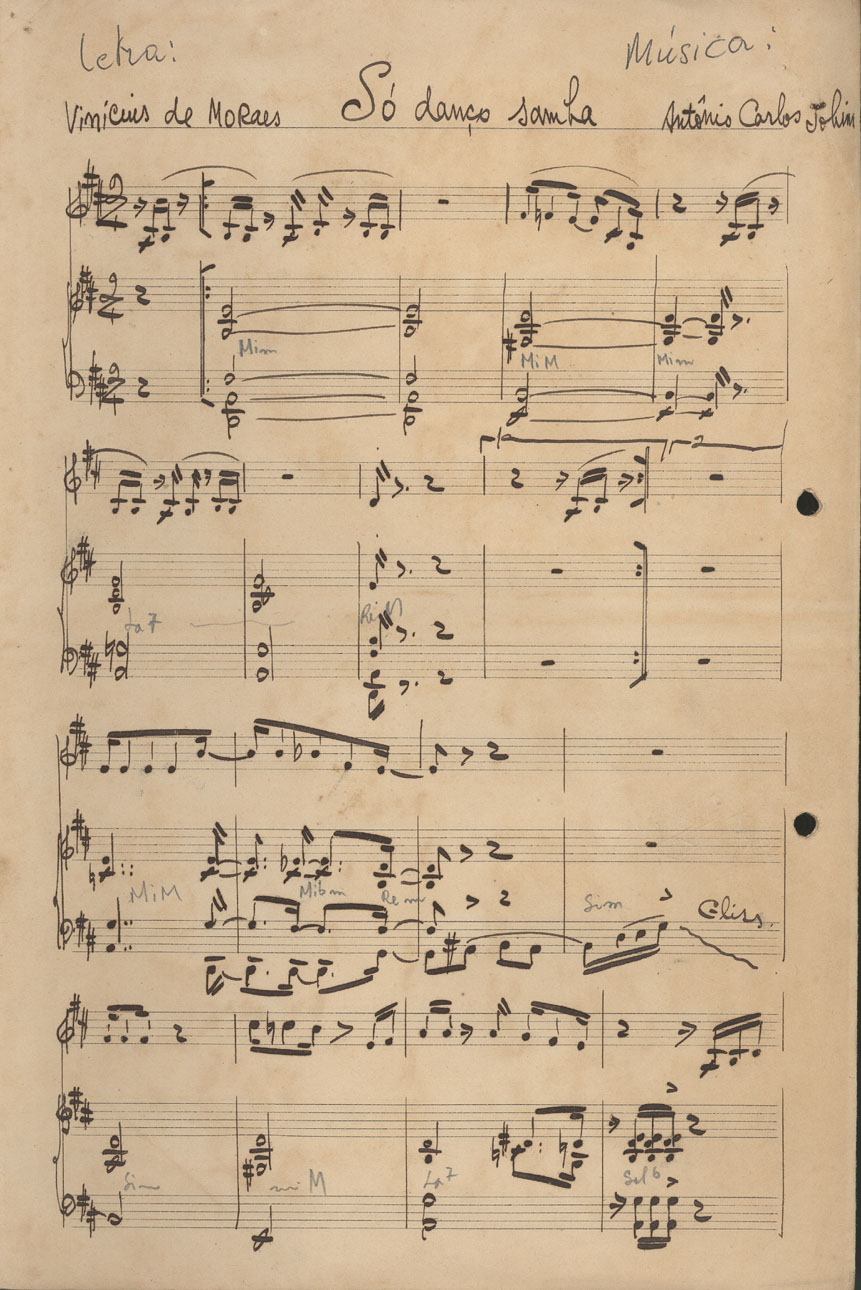 Letra: Música:
Vinícius de Moraes Só danço samba Antônio Carlos Jobim
Mim MiM Mim
1 2
La7 ReM
MiM Mibm Rem Sim Gliss.
Sim miM La7 Sol6